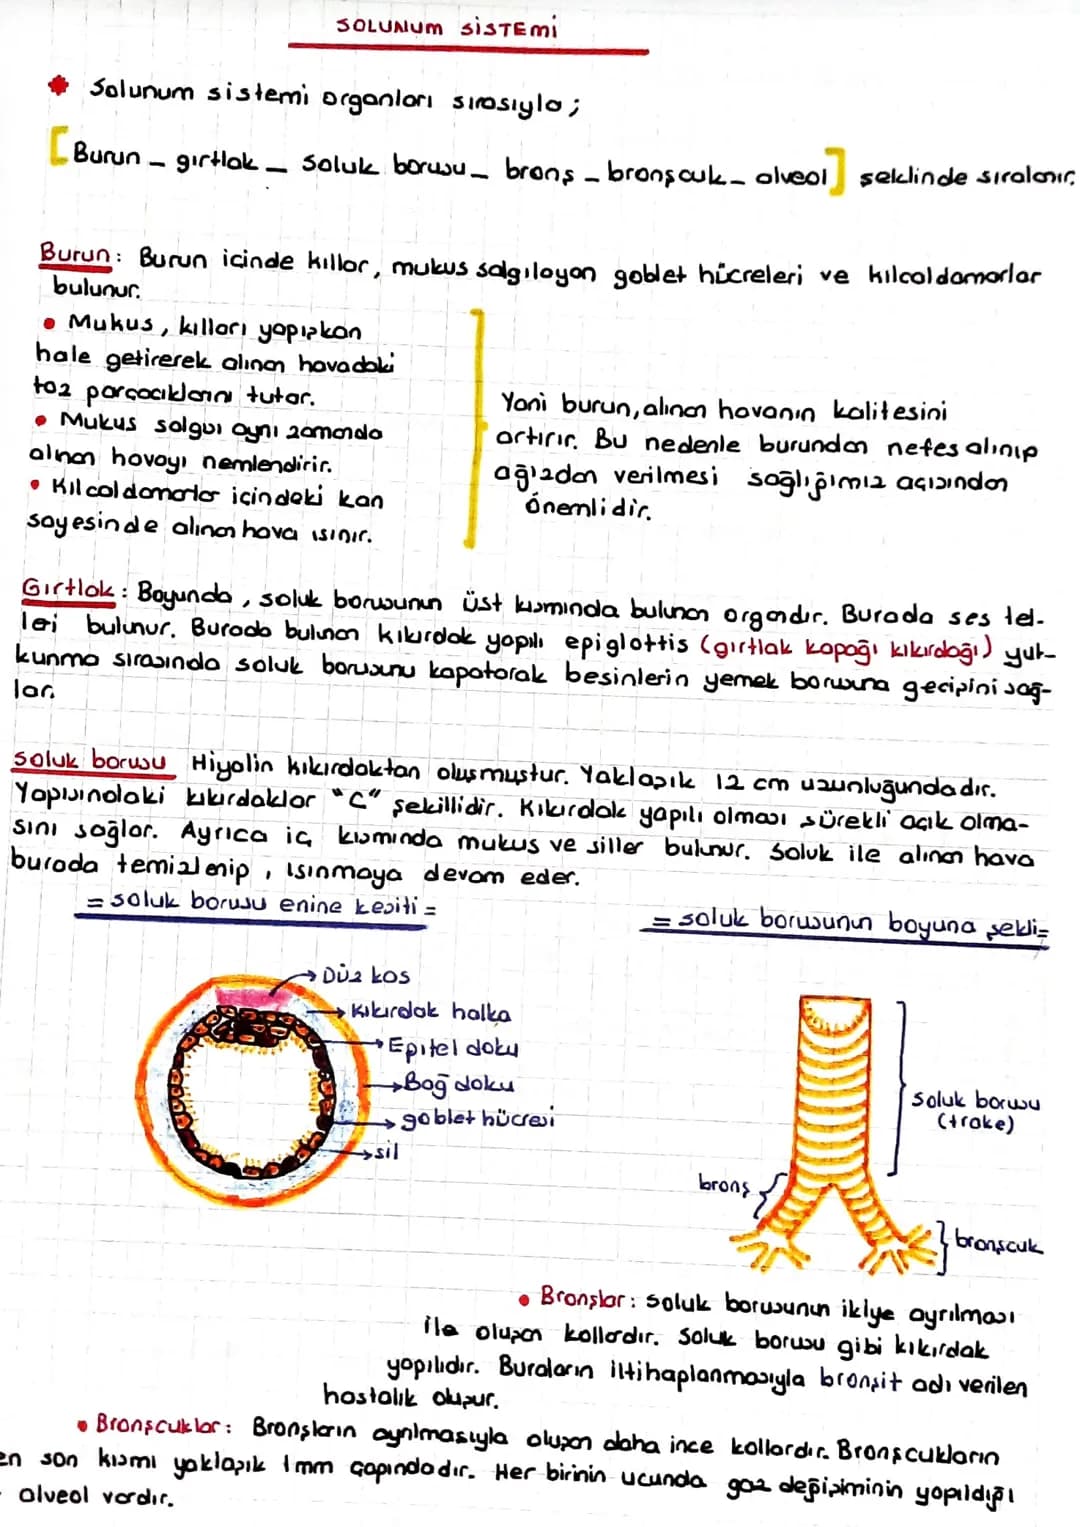 SOLUNUM SİSTEMİ
Solunum sistemi organları sırasıyla;
[Burun - gırtlak - Soluk borusu - bronş - bronşcuk - alveol] şeklinde sıralanır.
Burun: Burun içinde kıllar, mukus salgılayan goblet hücreleri ve kılcaldamarlar
bulunur.
• Mukus, kılları yapışkan
hale getirerek alınan havadaki
toz parçacıklarını tutar.
• Mukus salgısı aynı zamanda
alınan havayı nemlendirir.
• Kılcaldamarlar içindeki kan
sayesinde alınan hava ısınır.
Yani burun, alınan havanın kalitesini
artırır. Bu nedenle burundan nefes alınıp
ağızdan verilmesi sağlığımız açısından
önemlidir.
Gırtlak: Boyunda, soluk borusunun üst kısmında bulunan organdır. Burada ses tel-
leri bulunur. Burada bulunan kıkırdak yapılı epiglottis (gırtlak kapağı kıkırdağı) yut-
kunma sırasında soluk borusunu kapatarak besinlerin yemek borusuna geçişini sağ-
lar.
Soluk borusu Hiyalin kıkırdaktan oluşmuştur. Yaklaşık 12 cm uzunluğundadır.
Yapısındaki kıkırdaklar "C" şekillidir. Kıkırdak yapılı olması sürekli açık olma-
sını sağlar. Ayrıca iç kısmında mukus ve siller bulunur. Soluk ile alınan hava
burada temizlenip, ısınmaya devam eder.
= soluk borusu enine kesiti =
= soluk borusunun boyuna şekli=
Düz kas
Kıkırdak halka
Epitel doku
Bağ doku
goblet hücresi
sil
soluk borusu
(trake)
bronş
bronşcuk
• Bronşlar: Soluk borusunun ikiye ayrılması
ile oluşan kollardır. Soluk borusu gibi kıkırdak
yapılıdır. Buraların iltihaplanmasıyla bronşit adı verilen
hastalık oluşur.
• Bronşcuklar: Bronşların ayrılmasıyla oluşan daha ince kollardır. Bronşcukların
en son kısmı yaklaşık 1mm çapındadır. Her birinin ucunda gaz değişiminin yapıldığı
alveol vardır.